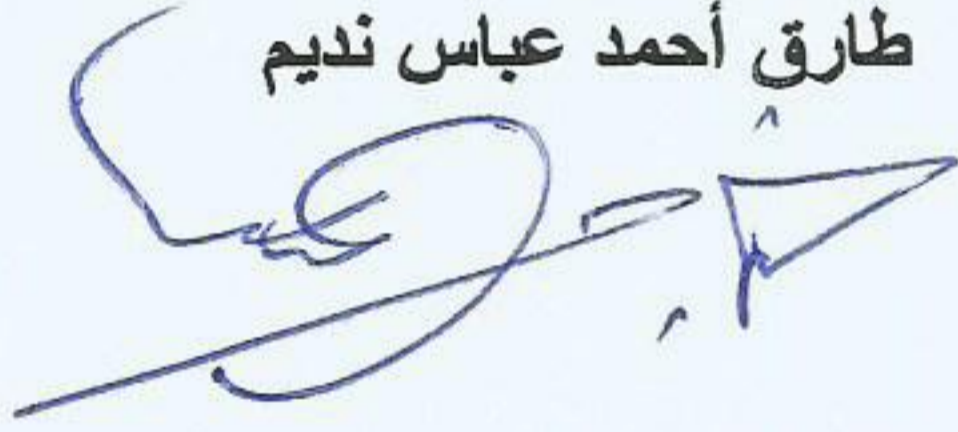 طارق أحمد عباس نديم